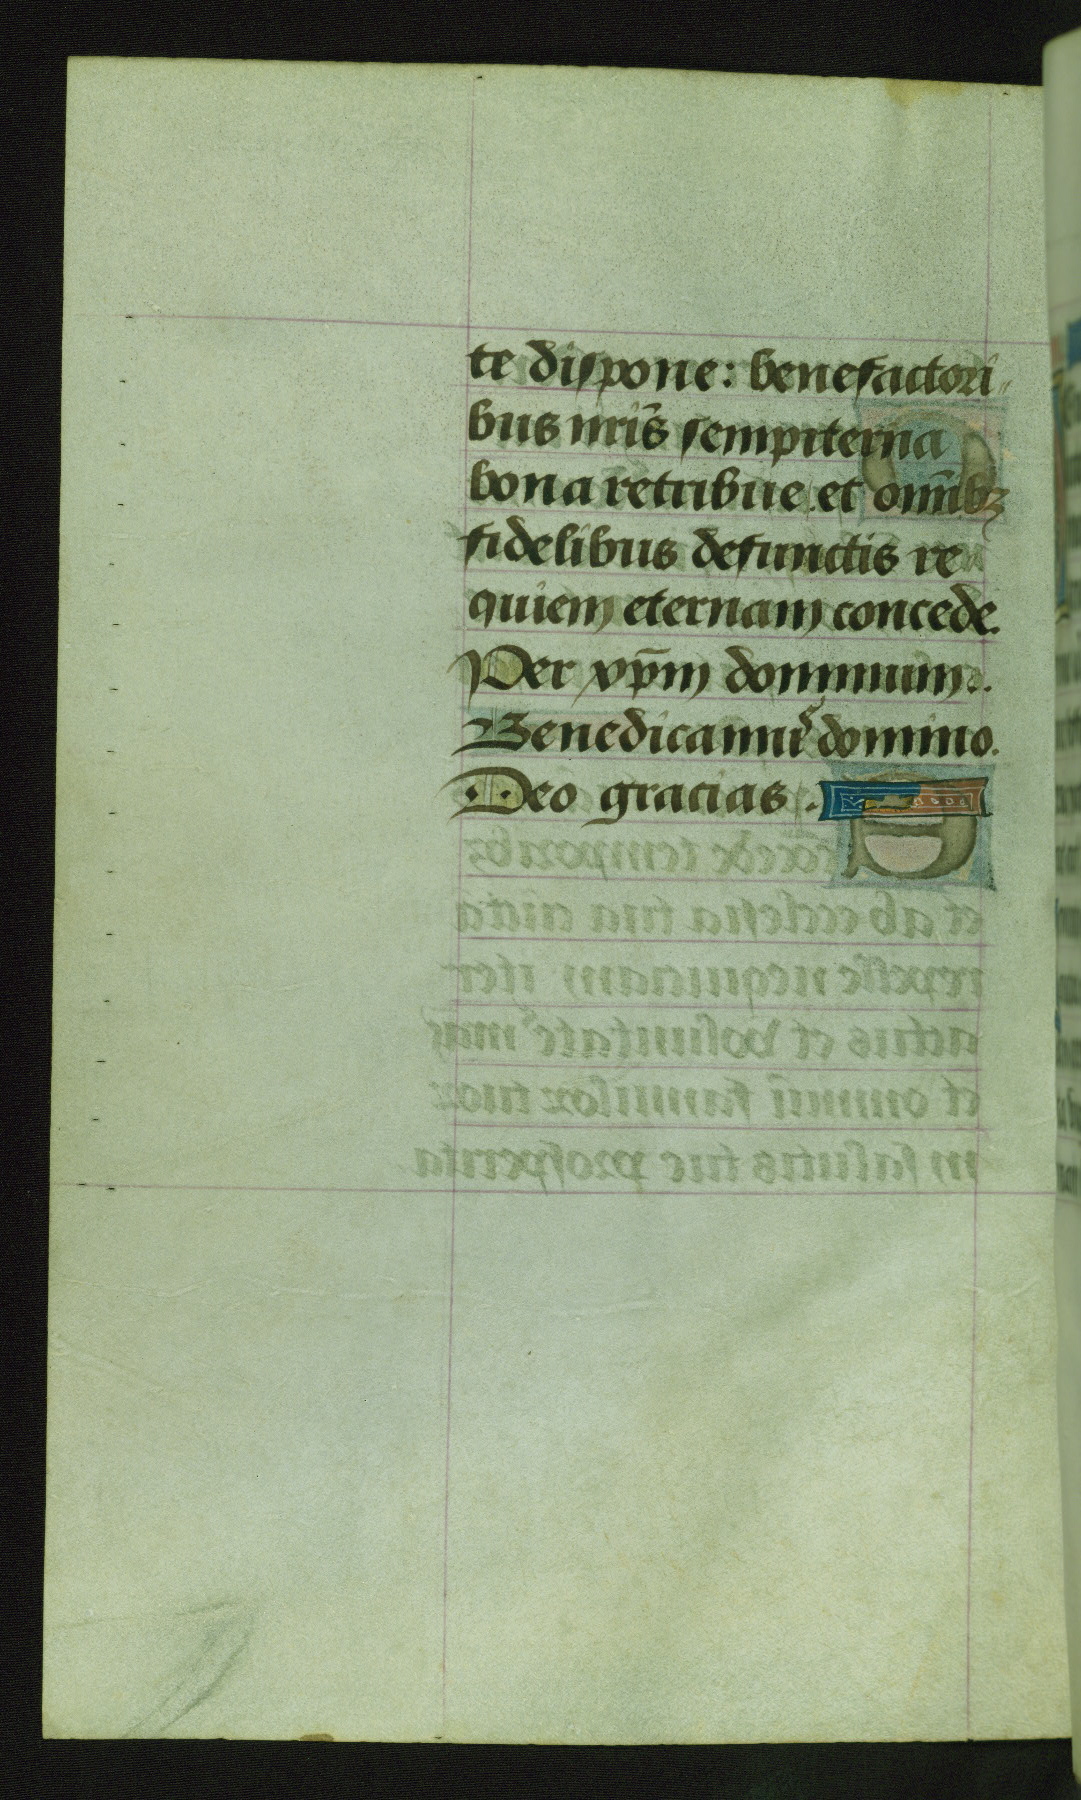 te dispone: benefactori
bus nr̄is sempiterna
bona retribue. et om̄ibꝫ
fidelibus defunctis re
quiem eternam concede.
Per xp̄m dominum..
Benedicamus domino.
Deo gracias.